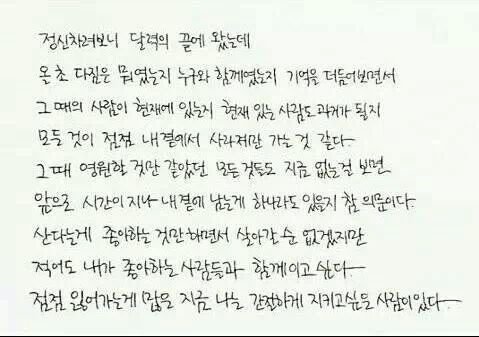 정신차려보니 달력의 끝에 왔는데
올 초 다짐은 뭐였는지 누구와 함께였는지 기억을 더듬어보면서
그 때의 사람이 현재에 있는지 현재 있는 사람도 과거가 될지
모든 것이 점점 내 곁에서 사라져만 가는 것 같다.
그때 영원할 것만 같았던 모든 것들도 지금 없는걸 보면
앞으로 시간이 지나 내 곁에 남는게 하나라도 있을지 참 의문이다.
산다는게 좋아하는 것만 하면서 살아갈 순 없겠지만
적어도 내가 좋아하는 사람들과 함께이고 싶다.
점점 잃어가는게 많은 지금 나는 간절하게 지키고싶은 사람이 있다.